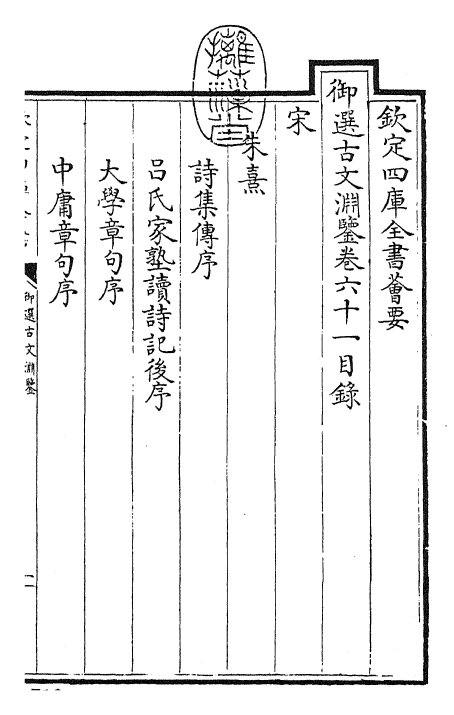 欽定四庫全書薈要
御選古文淵鑒卷六十一目錄
宋
朱熹
詩集傳序
呂氏家塾讀詩記後序
大學章句序
中庸章句序
御選古文淵鑒
摛藻堂